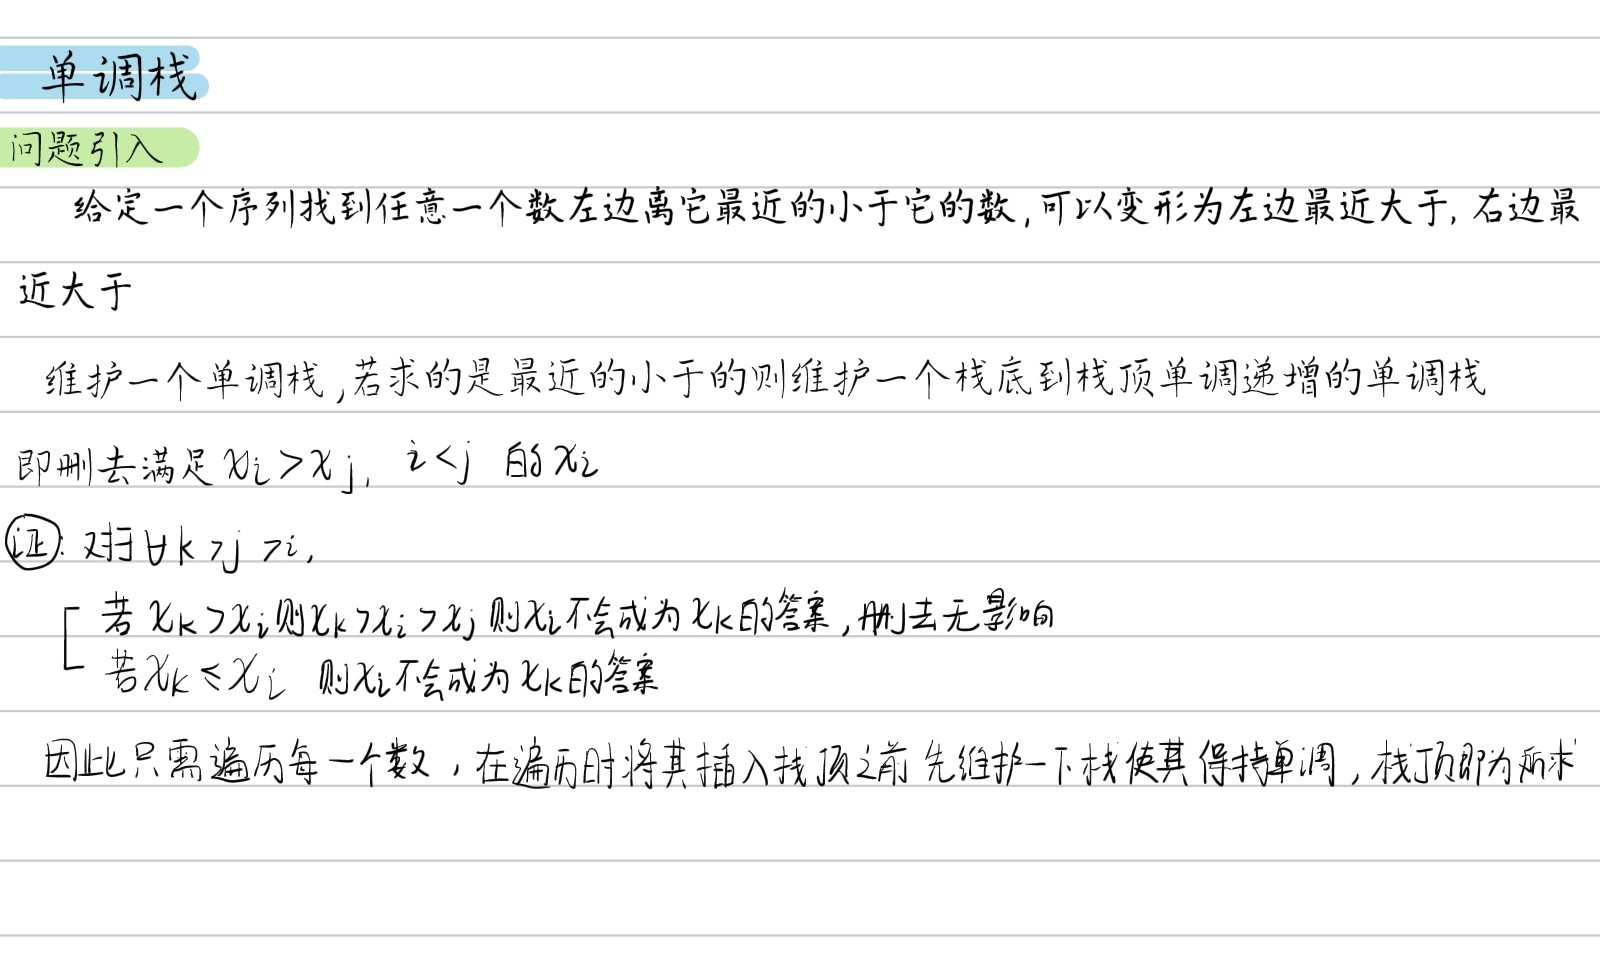 单调栈
问题引入
给定一个序列找到任意一个数左边离它最近的小于它的数,可以变形为左边最近大于,右边最
近大于
维护一个单调栈,若求的是最近的小于的则维护一个栈底到栈顶单调递增的单调栈
即删去满足 xi>xj, i<j 的 xi
证: 对于∀k>j>i,
若 xk>xi则xk>xi>xj 则xi不会成为xk的答案,删去无影响
若xk≤xi 则xi不会成为xk的答案
因此只需遍历每一个数,在遍历时将其插入栈顶之前先维护一下栈使其保持单调,栈顶即为所求